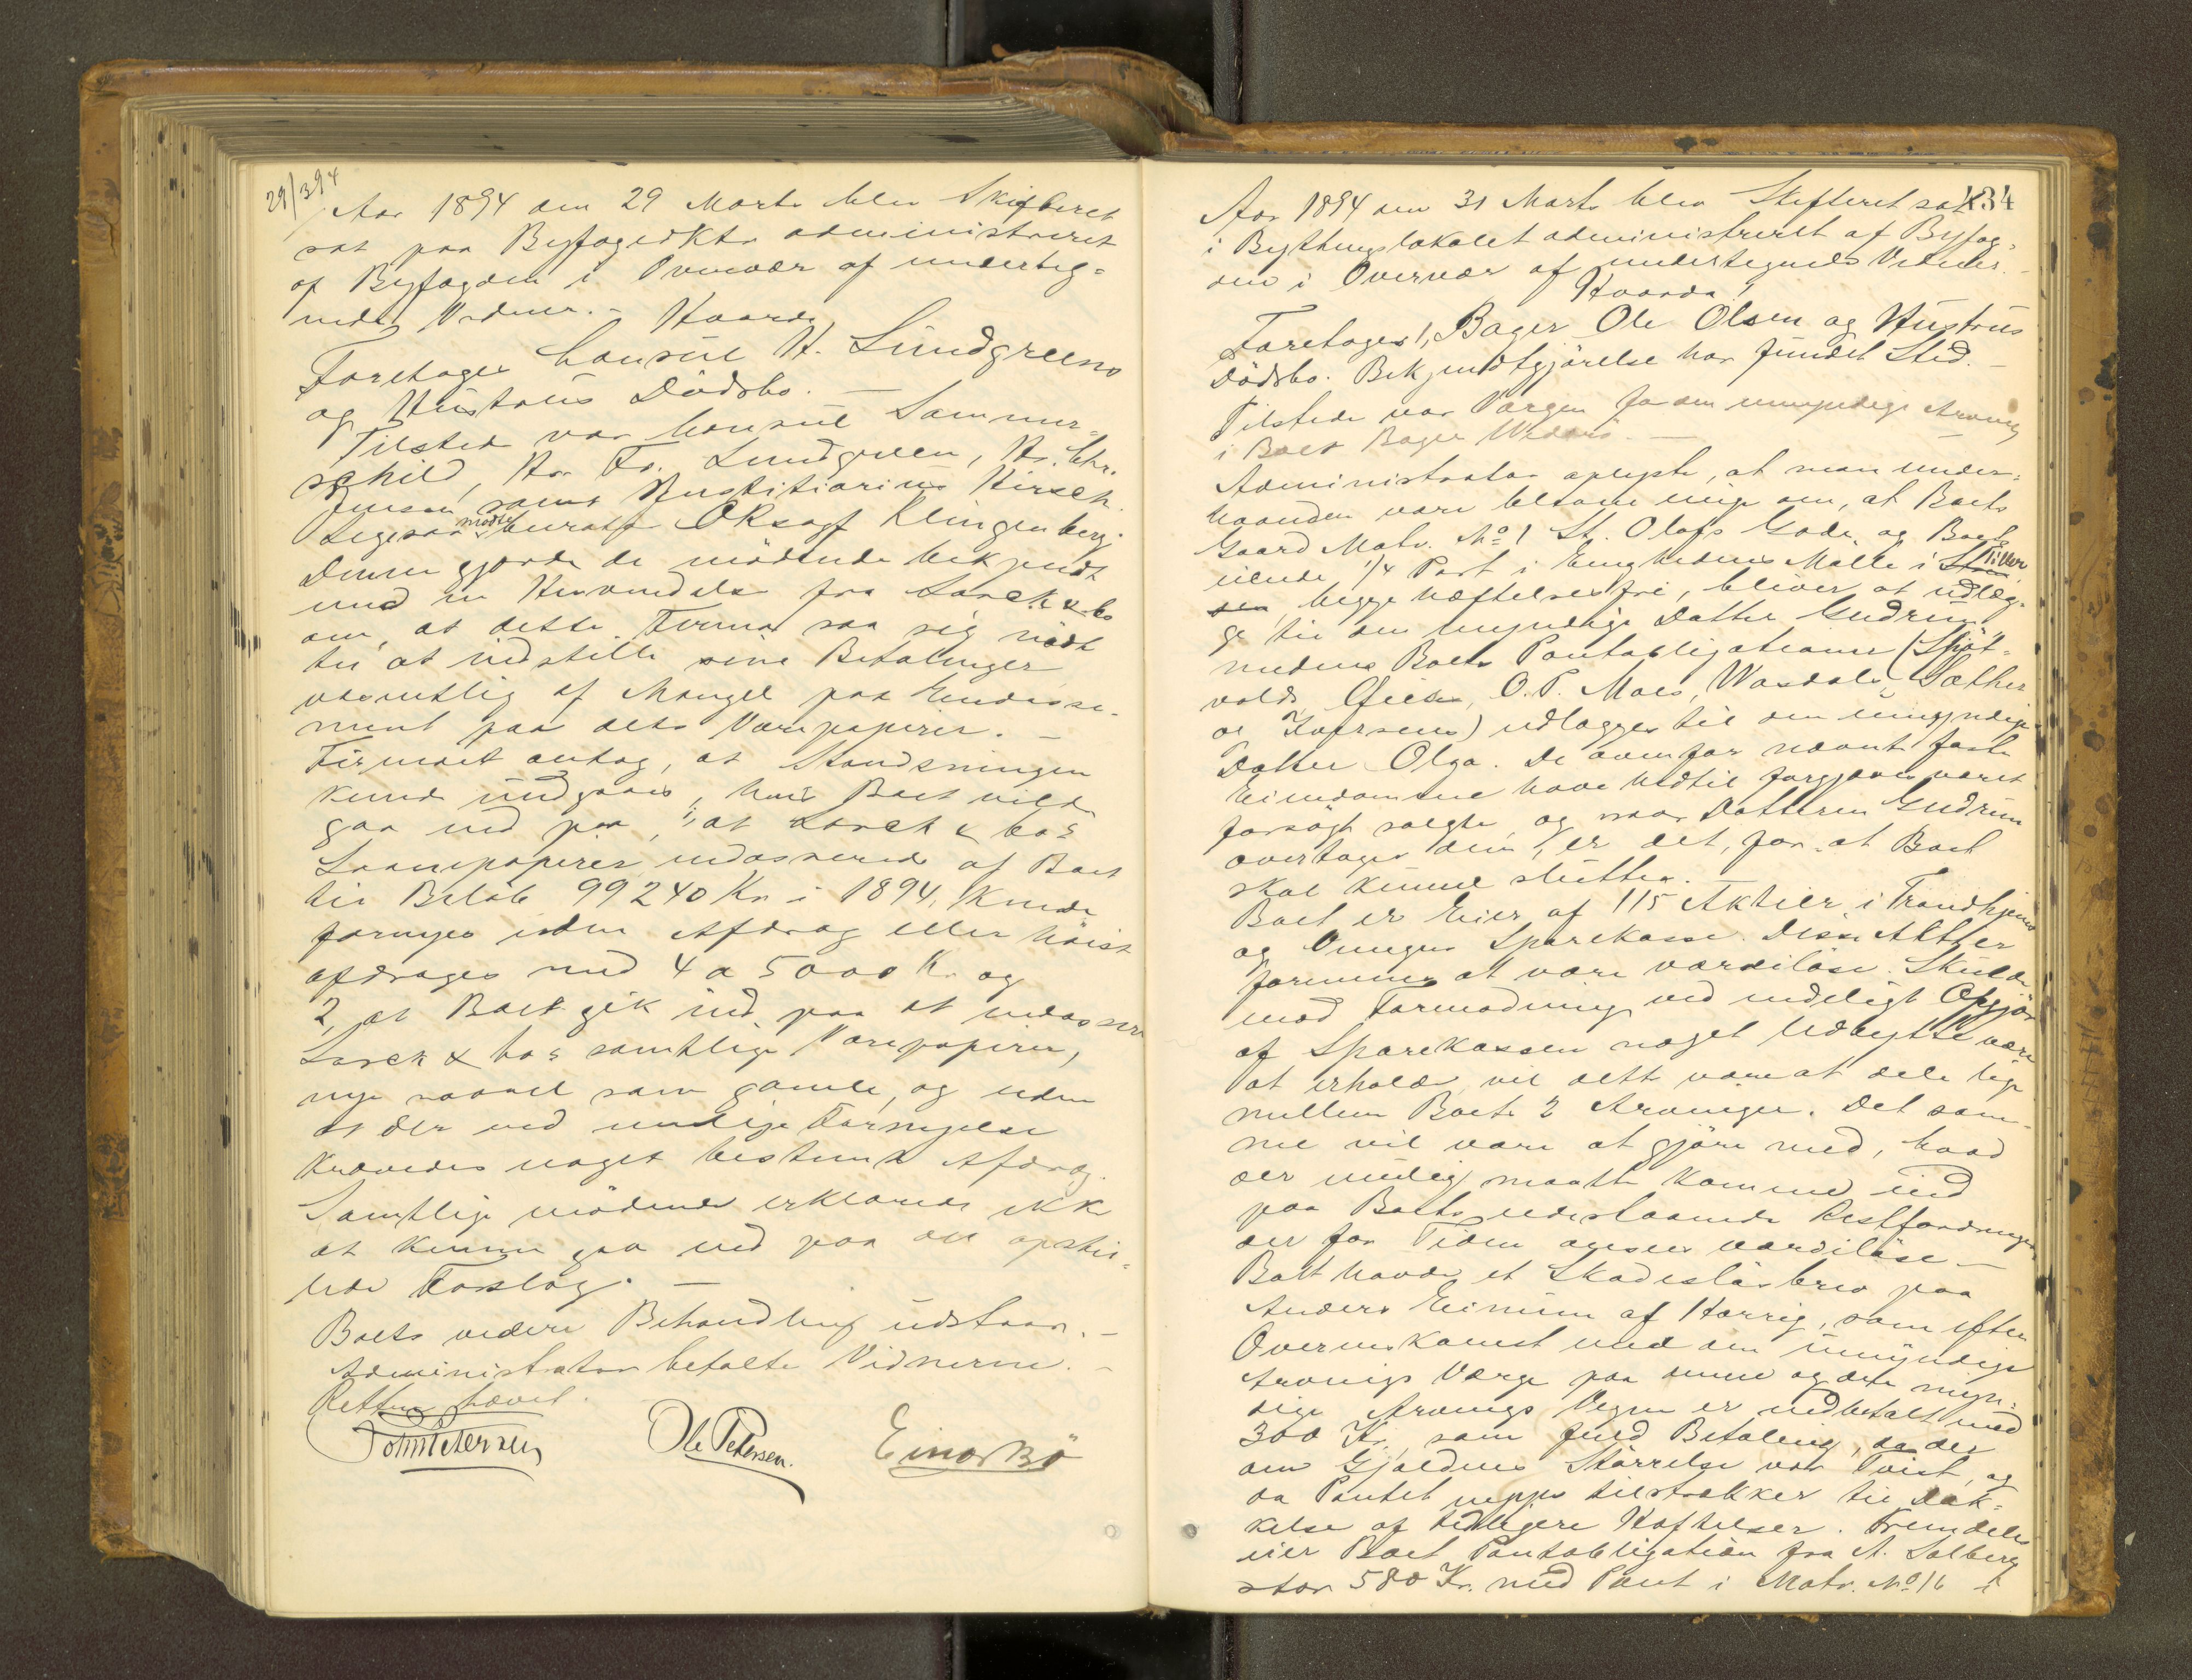 29/3 94
Aar 1894 den 29 Marts blev Skifteret
sat paa Byfogedktr administreret
af Byfogden i Overvær af underteg-
nede Vidner. - Hvorda
Foretoges Consul H. Lundgreens
og Hustrus Dödsbo. -
Tilstede var Consul Sommer-
schild, Hr. Fr. Lundgreen, Hr. Chr.
Jensen samt Justitiarius Hirsch.
Ligesaa mödte Curator ORsagf Klingenberg.
Denne gjorde de mödende bekjendt
med en Henvendelse fra Lorck & Co
om, at dette Firma saa sig nödt
til at indstille sine Betalinger
væsentlig af Mangel paa Endosse-
ment paa dets Varepapirer. -
Firmaet antog, at Standsningen
kunde undgaaes, hvis Boet vilde
gaa ind paa, 1, at Lorck & Co's
Laanepapirer endosserede af Boet
til Beløb 99240 Kr i 1894, kunde
fornyes uden Afdrag eller höist
afdrages med 4 a 5000 Kr og
2, at Boet gik ind paa at endossere
Lorck & Co's samtlige Varepapirer,
nye saavel som gamle, og uden
at der ved mulige Fornyelse
krævedes noget bestemt Afdrag.
Samtlige mödende erklærede ikke
at kunne gaa ind paa det opstil-
lede Forslag. -
Boets videre Behandling udstaar. -
Administrator betalte Vidnerne. -
Retten hævet.
Joh Petersen Ole Petersen. Einar Bö
434
Aar 1894 den 31 Marts blev Skifteret sat
i Bythingslokalet administreret af Byfog-
den i Overvær af undertegnede Vidner. -
Hvorda!
Foretoges 1, Bager Ole Olsen og Hustrus
Dödsbo. Bekjendtgjörelse har fundet Sted. -
Tilstede var Værgen for den umyndige Arving
i Boet Bager
Administrator oplyste, at man under-
haanden var bleven enig om, at Boets
Gaard Matr. No 1 St. Olafs Gade, og Boets
eiende 1/4 Part i Enighedens Mölle i Tiller
begge hæftelsesfri, bliver at udlæg-
ge til den myndige Datter Gudrun
medens Boets Pantobligationer (Spjöt-
vold, O. P. Moes, Wasdals, Sæther
og Iversens) udlægges til den umyndige
Datter Olga. De ovenfor nævnte faste
Eiendomme have hidtil forgjæves været
forsögt solgte, og naar Datteren Gudrun
overtager dem, er det, for at Boet
skal kunne sluttes. -
Boet er Eier af 115 Aktier i Trondhjems
og Omegns Sparekasse. Disse Aktier
formenes at være værdiløse. Skulde
mod Formodning ved endeligt Opgjör
af Sparekassen noget Udbytte være
at erholde, vil dette være at dele lige
mellem Boets 2 Arvinger. Det sam-
me vil være at gjöre med, hvad
der mulig maatte komme ind
paa Boets udestaaende Restfordringer,
der for Tiden ansees værdiløse -
Boet havde et Skadeslösbrev paa
Anders Einum af Horrig, som efter
Overenskomst med den umyndige
Arvings Værge paa denne og den myn-
dige Arvings Vegne er indbetalt med
300 Kr., som fuld Betaling, da der
om Gjældens Störrelse var Tvist, og
da Pantet neppe tilstrækker til Dæk-
kelse af tidligere Hæftelser. Fremdeles
eier Boet Pantobligation fra A. Solberg
stor 580 Kr. med Pant i Matr. No 16 i